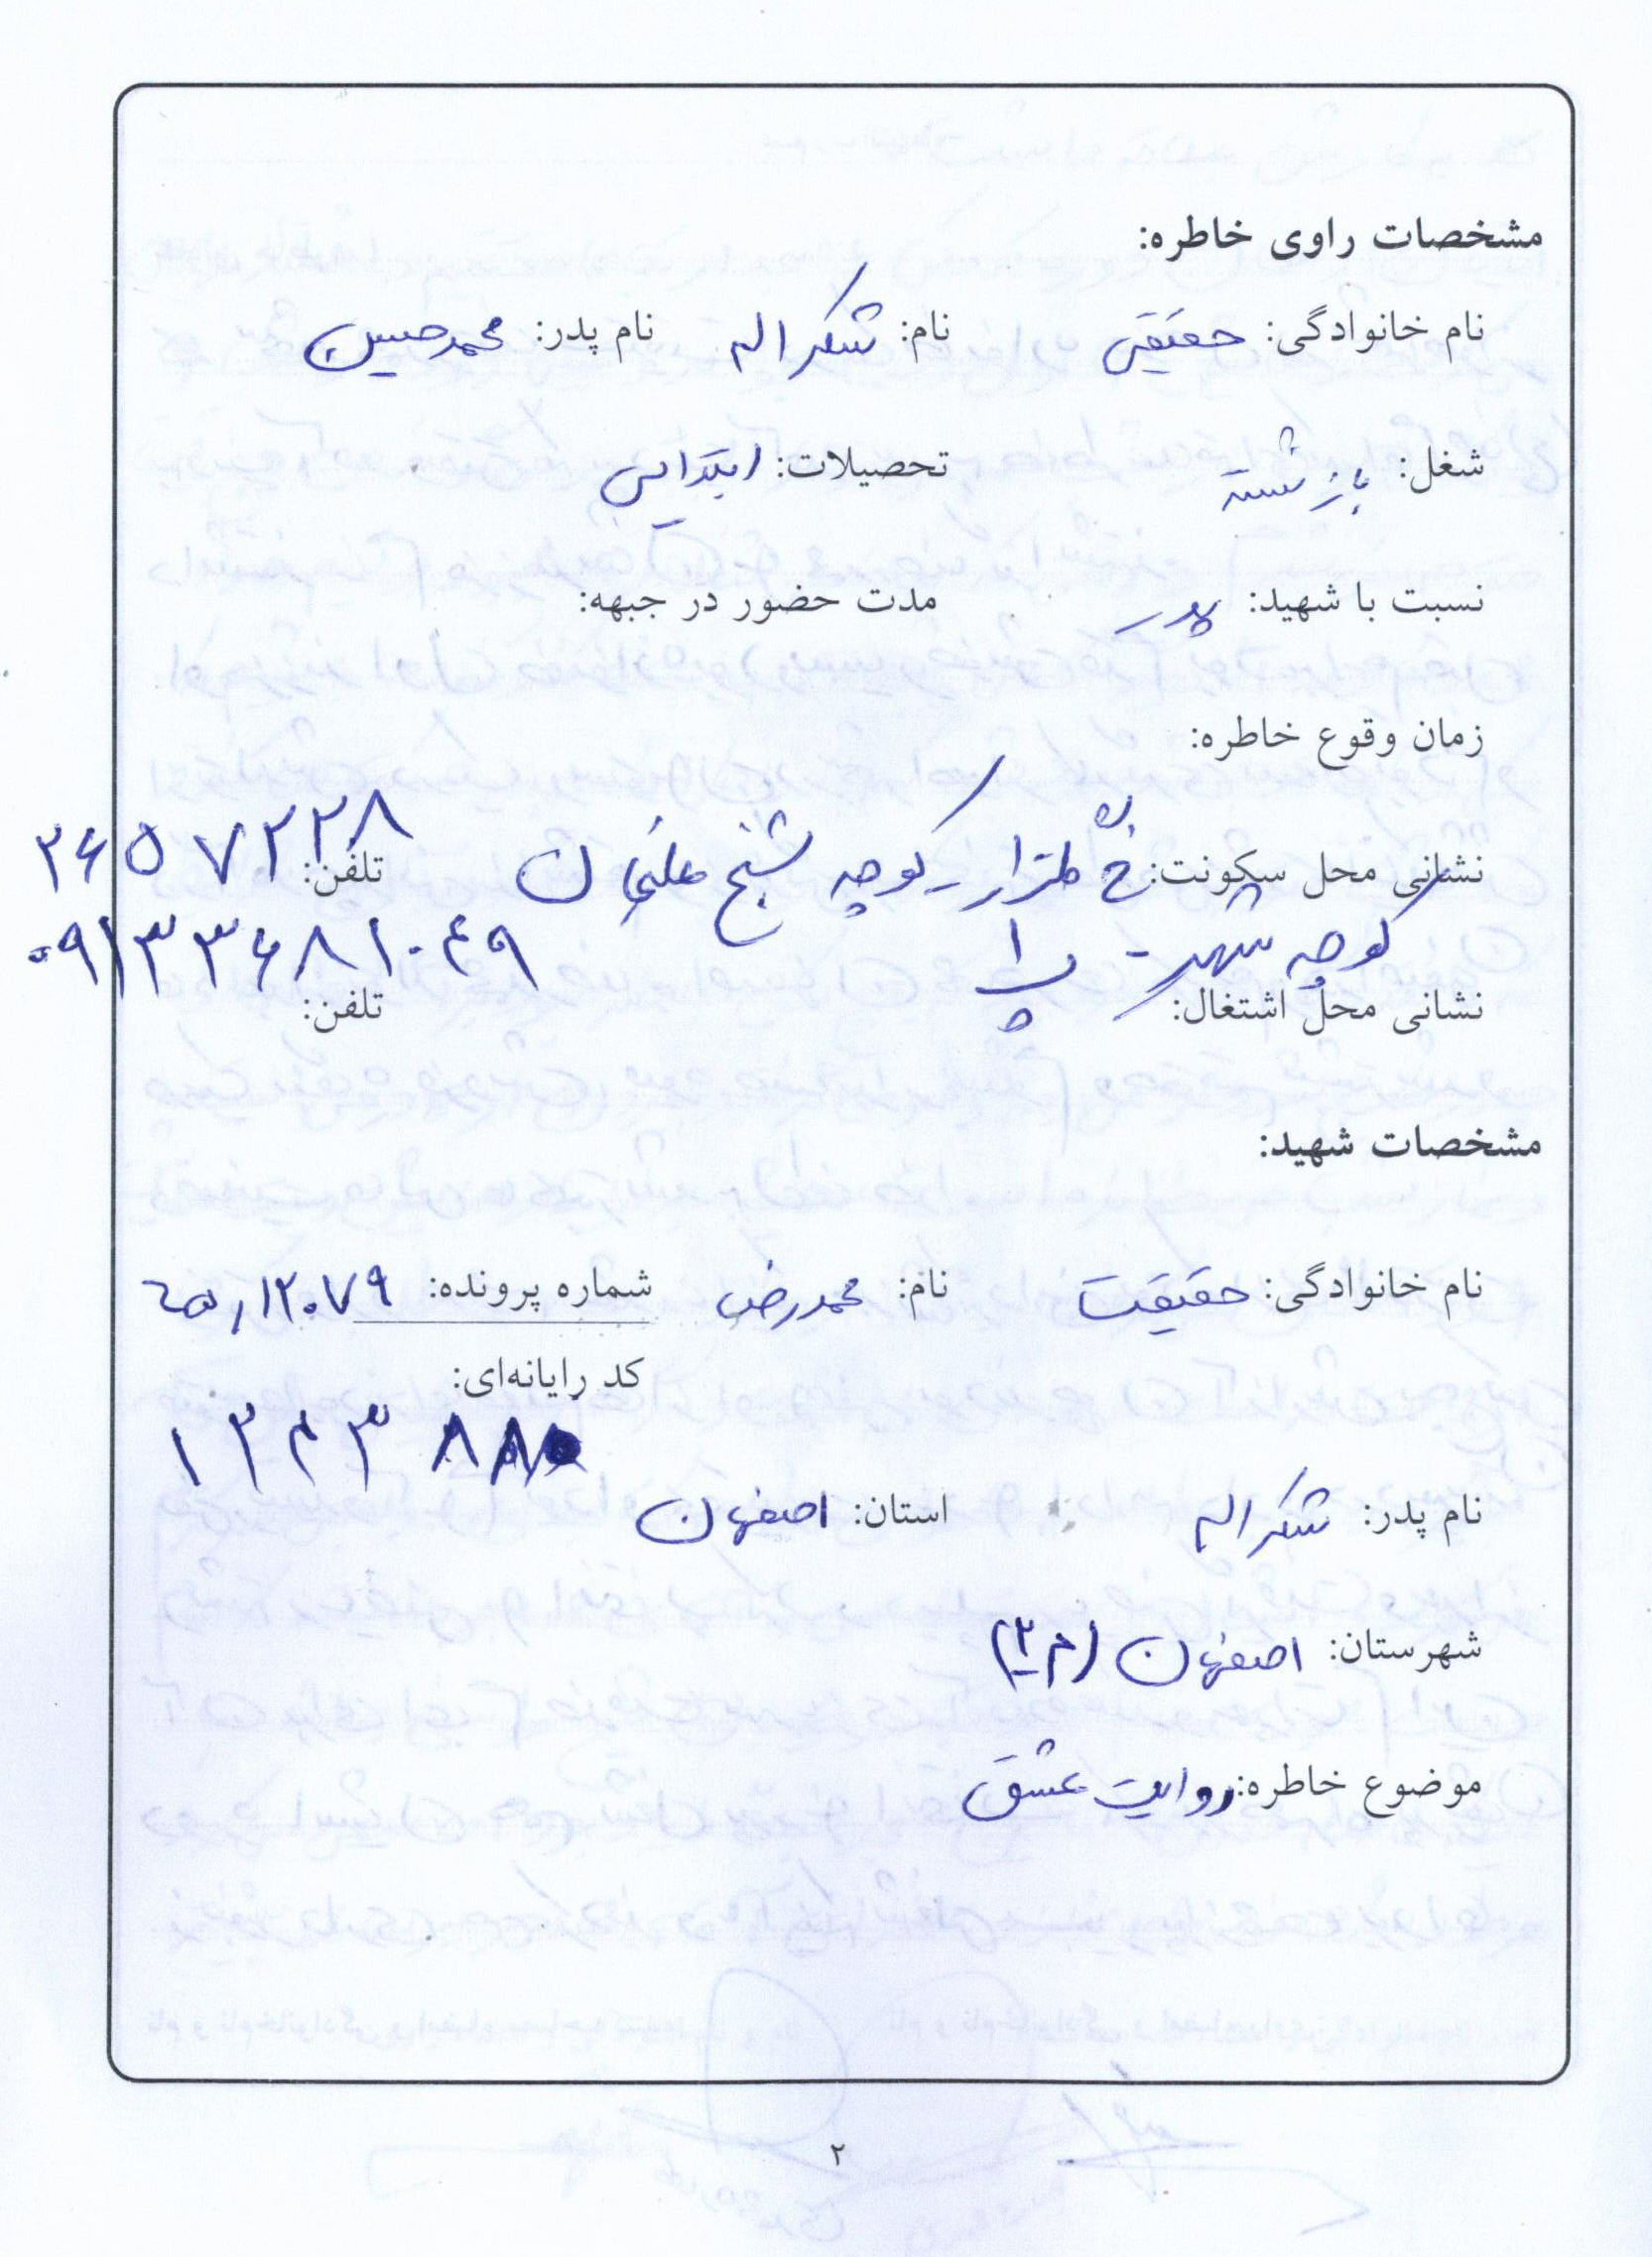 مشخصات راوی خاطره:
نام خانوادگی: حقیقی نام: شکراله نام پدر: محمدحسین
شغل: بازنشسته تحصیلات: ابتدایی
نسبت با شهید: پدر مدت حضور در جبهه:
زمان وقوع خاطره:
نشانی محل سکونت: خ کوچه شیخ تلفن: ۲۶۵۷۲۲۸
کوچه شهید پ ۱ ۰۹۱۳۳۶۸۱۰۴۹
نشانی محل اشتغال: تلفن:
مشخصات شهید:
نام خانوادگی: حقیقت نام: محمدرضا شماره پرونده: ۱۲۰۷۹
کد رایانه‌ای:
۱۳۴۳۸۸
نام پدر: شکراله استان: اصفهان
شهرستان: اصفهان (م ۲)
موضوع خاطره: روایت عشق
۲